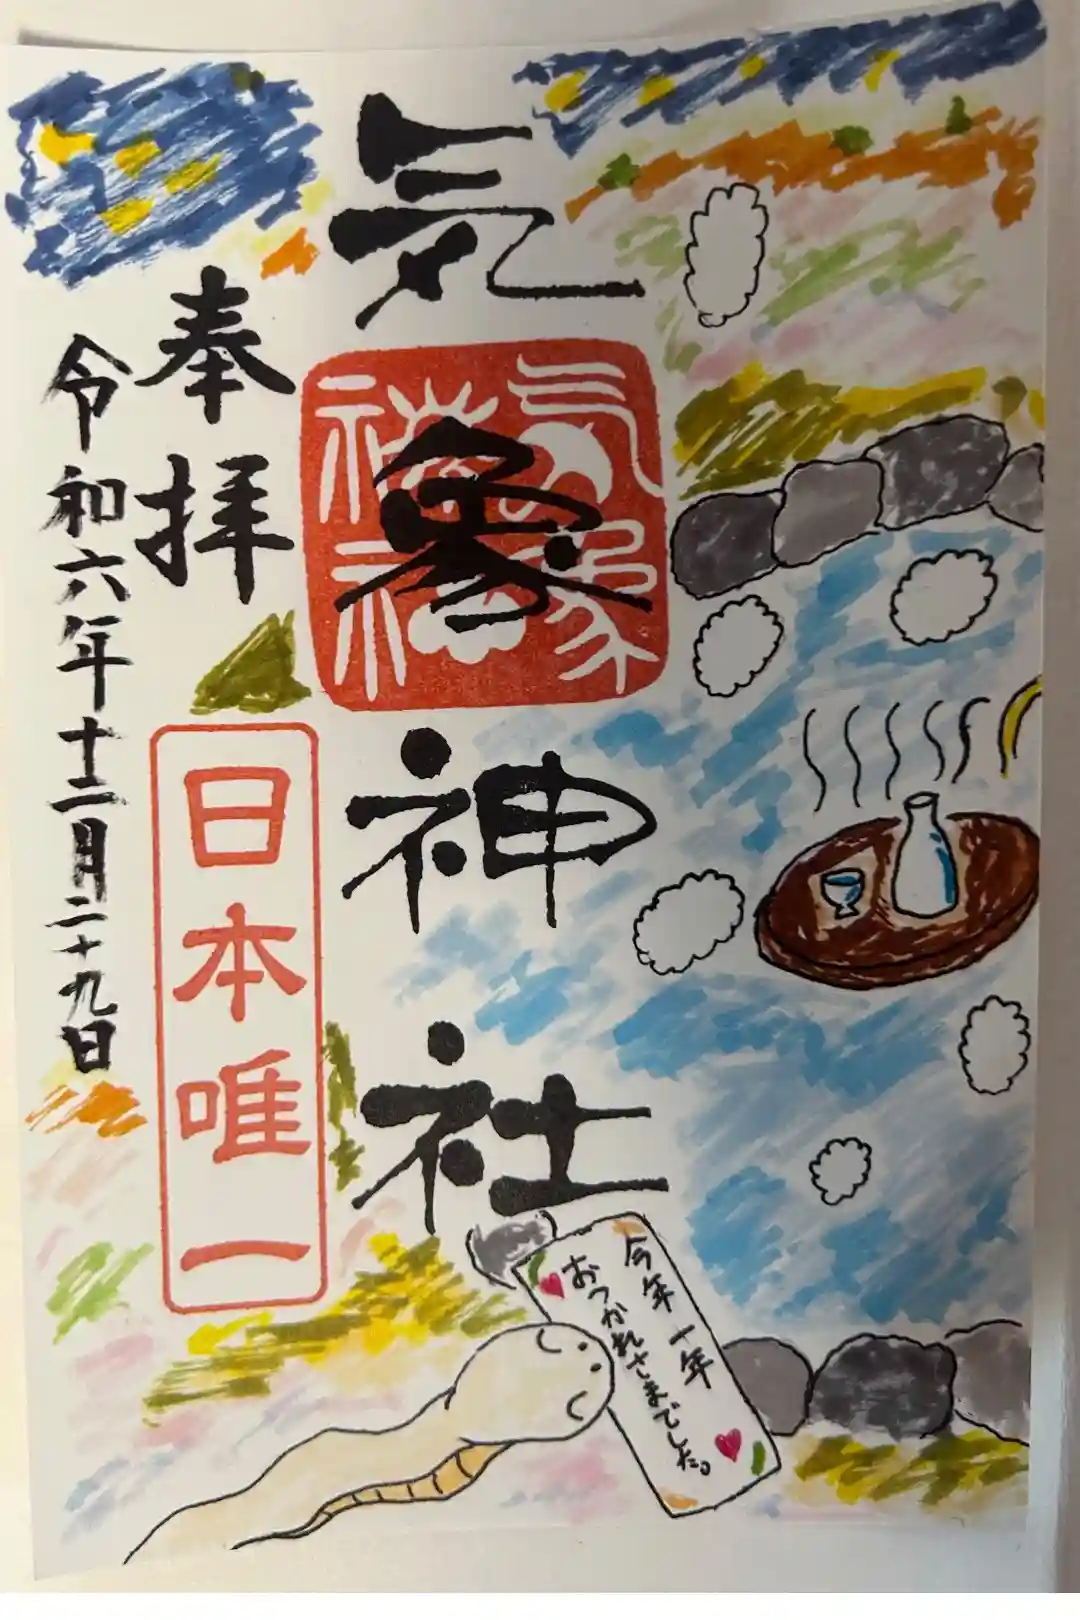 気象神社
気象
神社
奉拝
日本唯一
令和六年十二月二十九日
今年一年
おつかれさまでした。